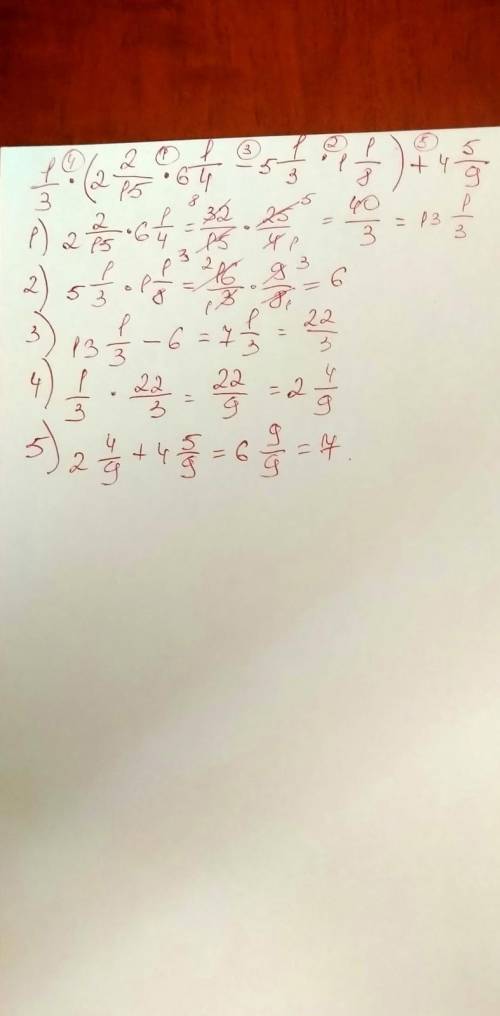 1/3 ④· (2 2/15 ①· 6 1/4 ③− 5 1/3 ②· 1 1/8) ⑤+ 4 5/9
1) 2 2/15 · 6 1/4 = 32/15 · 25/4 = 40/3 = 13 1/3
2) 5 1/3 · 1 1/8 = 16/3 · 9/8 = 6
3) 13 1/3 − 6 = 7 1/3 = 22/3
4) 1/3 · 22/3 = 22/9 = 2 4/9
5) 2 4/9 + 4 5/9 = 6 9/9 = 7.